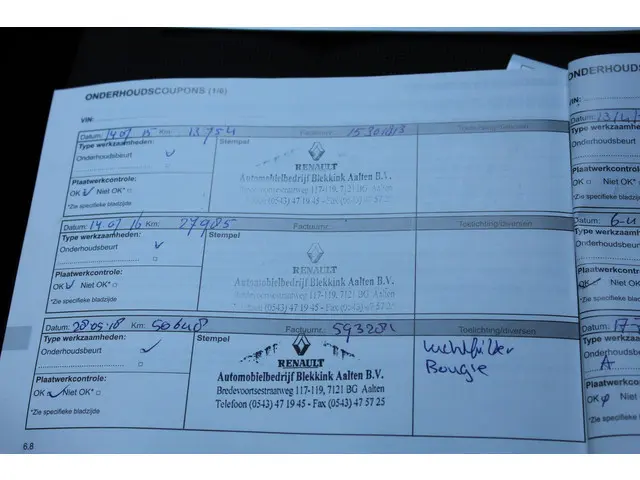 ONDERHOUDSCOUPONS (1/6)
VIN:
Datum: 14.01 15 Km: 13754 Factuurnr. Toelichting/diversen
Type werkzaamheden: Stempel
Onderhoudsbeurt ✓
RENAULT
Automobielbedrijf Blekkink Aalten B.V.
Bredevoortsestraatweg 117-119, 7121 BG Aalten
Telefoon (0543) 47 19 45 - Fax (0543) 47 57 25
Plaatwerkcontrole:
OK ✓ Niet OK* □
*Zie specifieke bladzijde
Datum: 14.01 16 Km: 27985 Factuurnr. Toelichting/diversen
Type werkzaamheden: Stempel
Onderhoudsbeurt ✓
RENAULT
Automobielbedrijf Blekkink Aalten B.V.
Bredevoortsestraatweg 117-119, 7121 BG Aalten
Telefoon (0543) 47 19 45 - Fax (0543) 47 57 25
Plaatwerkcontrole:
OK ✓ Niet OK* □
*Zie specifieke bladzijde
Datum: 28.05.18 Km: 50648 Factuurnr.: 593281 Toelichting/diversen
Type werkzaamheden: Stempel
Onderhoudsbeurt ✓
RENAULT
Automobielbedrijf Blekkink Aalten B.V.
Bredevoortsestraatweg 117-119, 7121 BG Aalten
Telefoon (0543) 47 19 45 - Fax (0543) 47 57 25
Luchtfilter
Bougie
Plaatwerkcontrole:
OK ✓ Niet OK* □
*Zie specifieke bladzijde
6.8
ONDERHOUDS
VIN:
Datum:
Type werkzaam
Onderhoudsbeurt
Plaatwerkcontr
OK □ Niet OK
*Zie specifieke bla
Datum: 6-4
Type werkzaam
Onderhoudsbeu
Plaatwerkcontr
Niet OK
*Zie specifieke bl
Datum: 17
Type werkzaa
Onderhoudsbe
A
Plaatwerkcon
OK Niet O
*Zie specifieke b